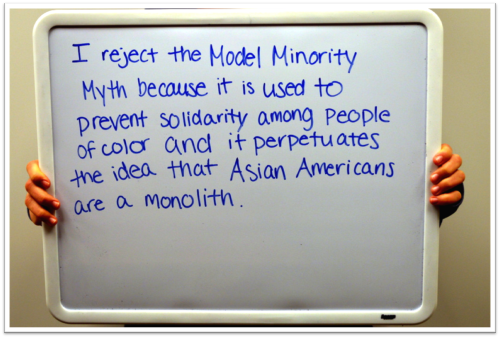 I reject the Model Minority
Myth because it is used to
prevent solidarity among people
of color and it perpetuates
the idea that Asian Americans
are a monolith.